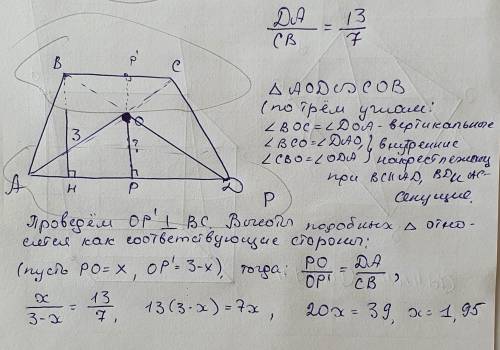 DA/CB = 13/7
B P' C
O
3 ?
A H P D
△ AOD ∾ COB
(по трём углам:
∠BOC = ∠DOA - вертикальные
∠BCO = ∠DAO, } внутренние
∠CBO = ∠ODA } накрестлежащ
при BC∥AD, BD и AC-
секущие.
P
Проведём OP' ⊥ BC. Высоты подобных △ отно-
сятся как соответствующие стороны:
(пусть PO = x, OP' = 3-x), тогда: PO/OP' = DA/CB,
x/3-x = 13/7, 13(3-x) = 7x, 20x = 39, x = 1,95